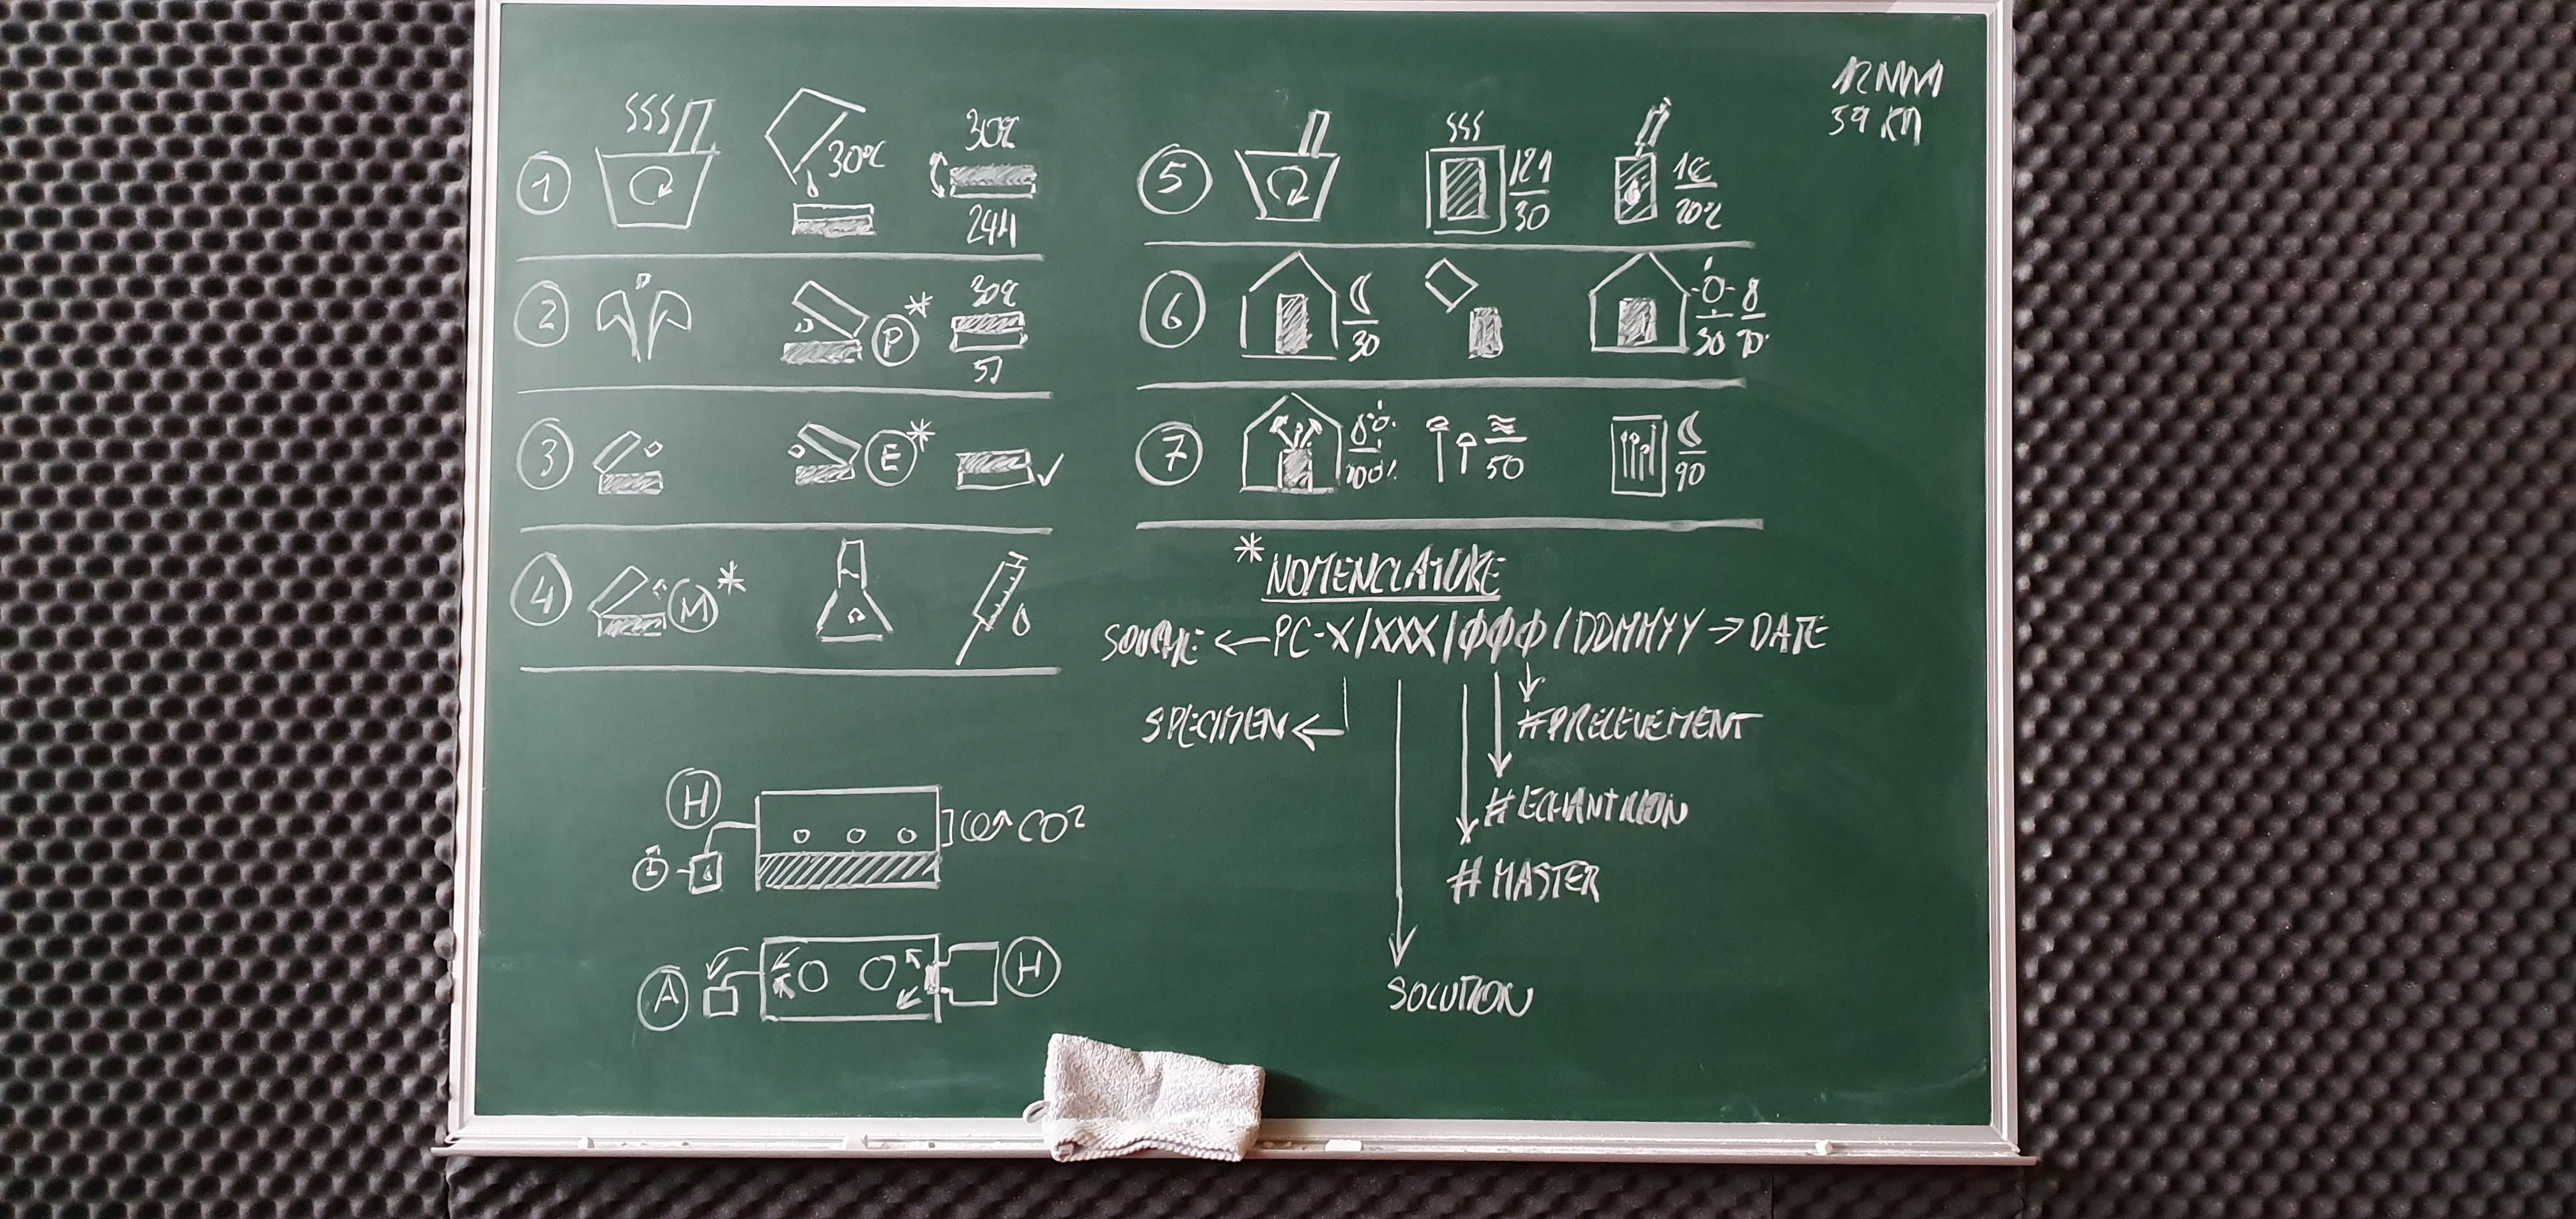 12NM
59 KM
1
30°C
30°C
24H
2
P*
30°C
5J
3
E*
4
M*
5
121
30
20°C
6
30
30
7
100%
50
90
*NOMENCLATURE
SOUCHE ← PC-X/XXX/ϕϕϕ/DDMMYY → DATE
SPECIMEN
#PRELEVEMENT
#ECHANTILLON
#MASTER
SOLUTION
H
CO2
A
H